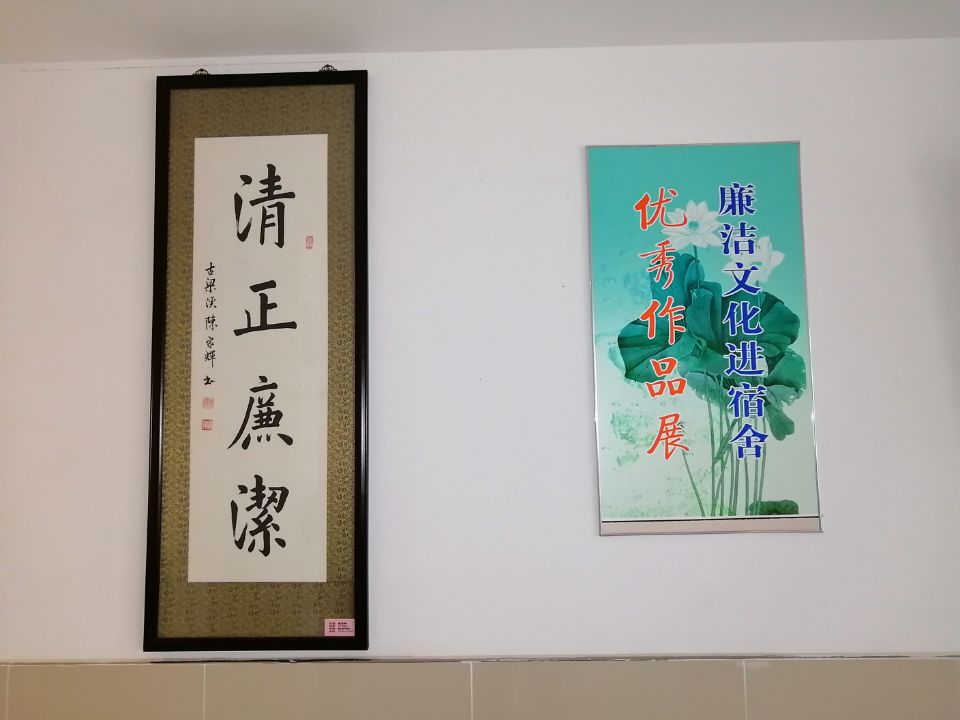 清正廉潔
古梁溪陳家輝书
廉洁文化进宿舍
优秀作品展